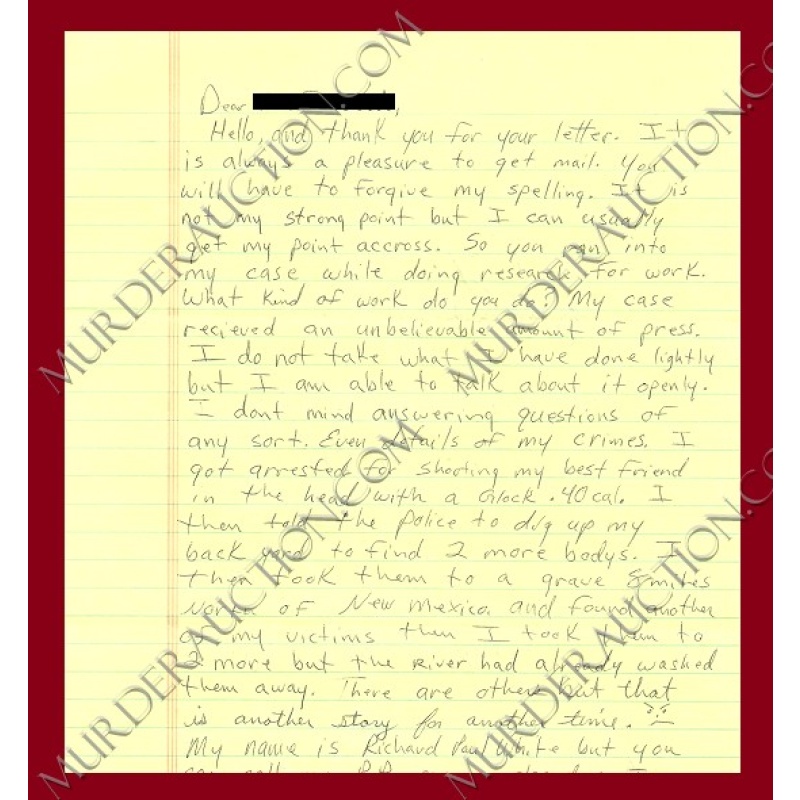 Dear
Hello, and thank you for your letter. It
is always a pleasure to get mail. You
will have to forgive my spelling. It is
not my strong point but I can usually
get my point accross. So you ran into
my case while doing research for work.
What kind of work do you do? My case
recieved an unbelievable amount of press.
I do not take what I have done lightly
but I am able to talk about it openly.
I dont mind answering questions of
any sort. Even details of my crimes. I
got arrested for shooting my best friend
in the head with a Glock .40cal. I
then told the Police to dig up my
back yard to find 2 more bodys. I
then took them to a grave 8 miles
North of New Mexico and found another
of my victims then I took them to
2 more but the River had already washed
them away. There are others but that
is another story for another time.
My name is Richard Paul White but you
MURDERAUCTION.COM
MURDERAUCTION.COM
MURDERAUCTION.COM
MURDERAUCTION.COM